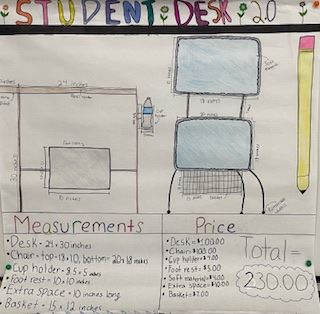 STUDENT DESK 2.0
24 inches
Measurements
• Desk = 24 x 30 inches
• Chair = top = 18 x 10, bottom = 20 x 18 inches
• Cup holder = 8.5 x 5 inches
• Foot rest = 10 x 10 inches
• Extra space = 10 inches long
• Basket = 15 x 12 inches
Price
• Chair = $100.00
• Cup holder = $4.00
• Foot rest = $5.00
• Soft material = $4.00
• Extra space = $10.00
• Basket = $7.00
Total =
230.00